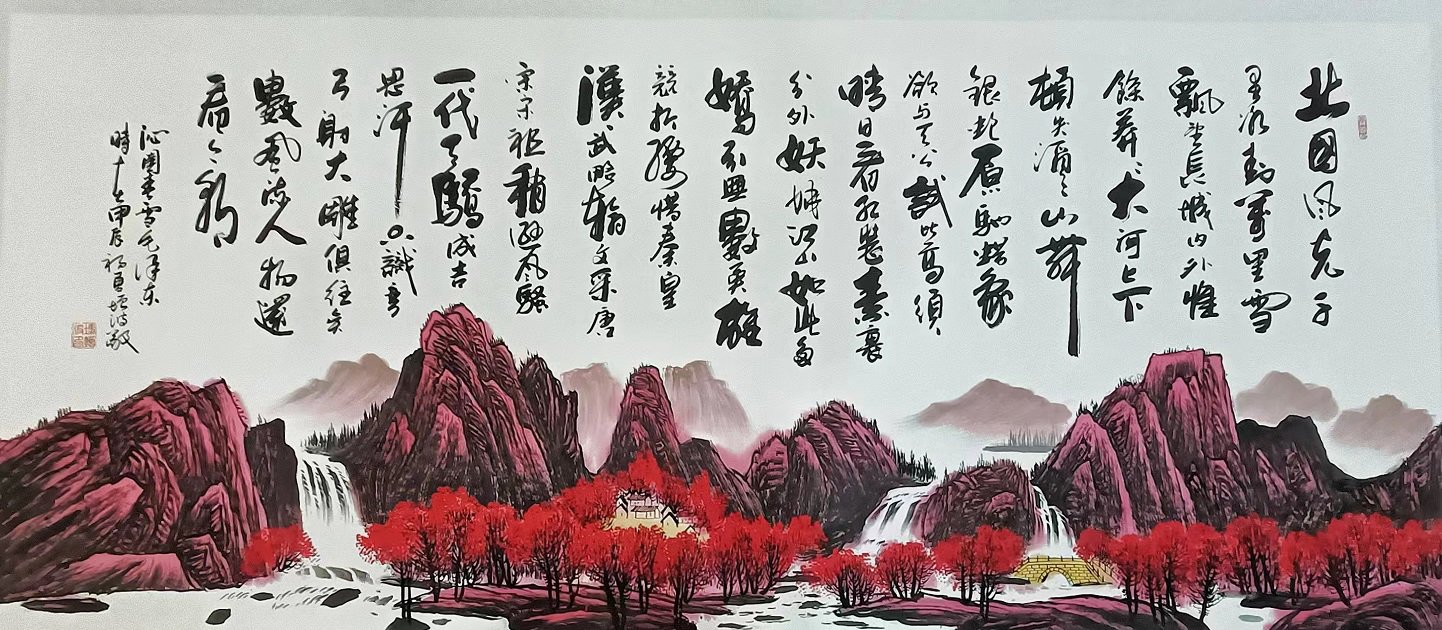 北國风光千
里冰封万里雪
飘望長城内外惟
馀莽莽大河上下
頓失滔滔山舞
銀蛇原馳蜡象
欲与天公試比高須
晴日看红装素裹
分外妖娆江山如此多
嬌引無數英雄
競折腰惜秦皇
漢武略输文采唐
宗宋祖稍逊风騷
一代天驕成吉
思汗只識弯
弓射大雕俱往矣
數風流人物還
看今朝
沁園春雪毛泽东
時甲辰初夏